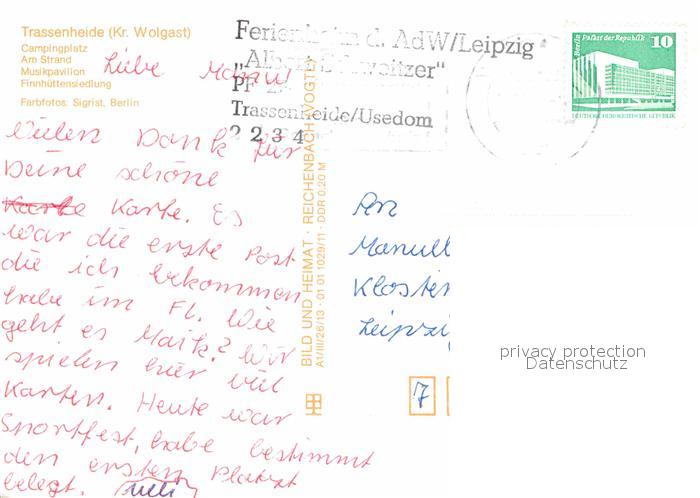 Trassenheide (Kr. Wolgast)
Campingplatz
Am Strand
Musikpavillon
Finnhüttensiedlung
Farbfotos: Sigrist, Berlin
Ferienheim d. AdW/Leipzig
„Albert Schweitzer"
PF
Trassenheide/Usedom
2 2 3 4
Berlin Palast der Republik
10
DEUTSCHE DEMOKRATISCHE REPUBLIK
Liebe
Vielen Dank für
Deine schöne
Karte Karte. Es
war die erste Post
die ich bekommen
habe im FL. Wie
geht es Maik? Wir
spielen hier viel
Karten. Heute war
Sportfest, habe bestimmt
den ersten Platzt
belegt.
BILD UND HEIMAT · REICHENBACH (VOGTL)
A1/III/26/13 · 01 01 1029/11 · DDR 0,20 M
An
Manuel
Kloster
Leipzig
7
privacy protection
Datenschutz